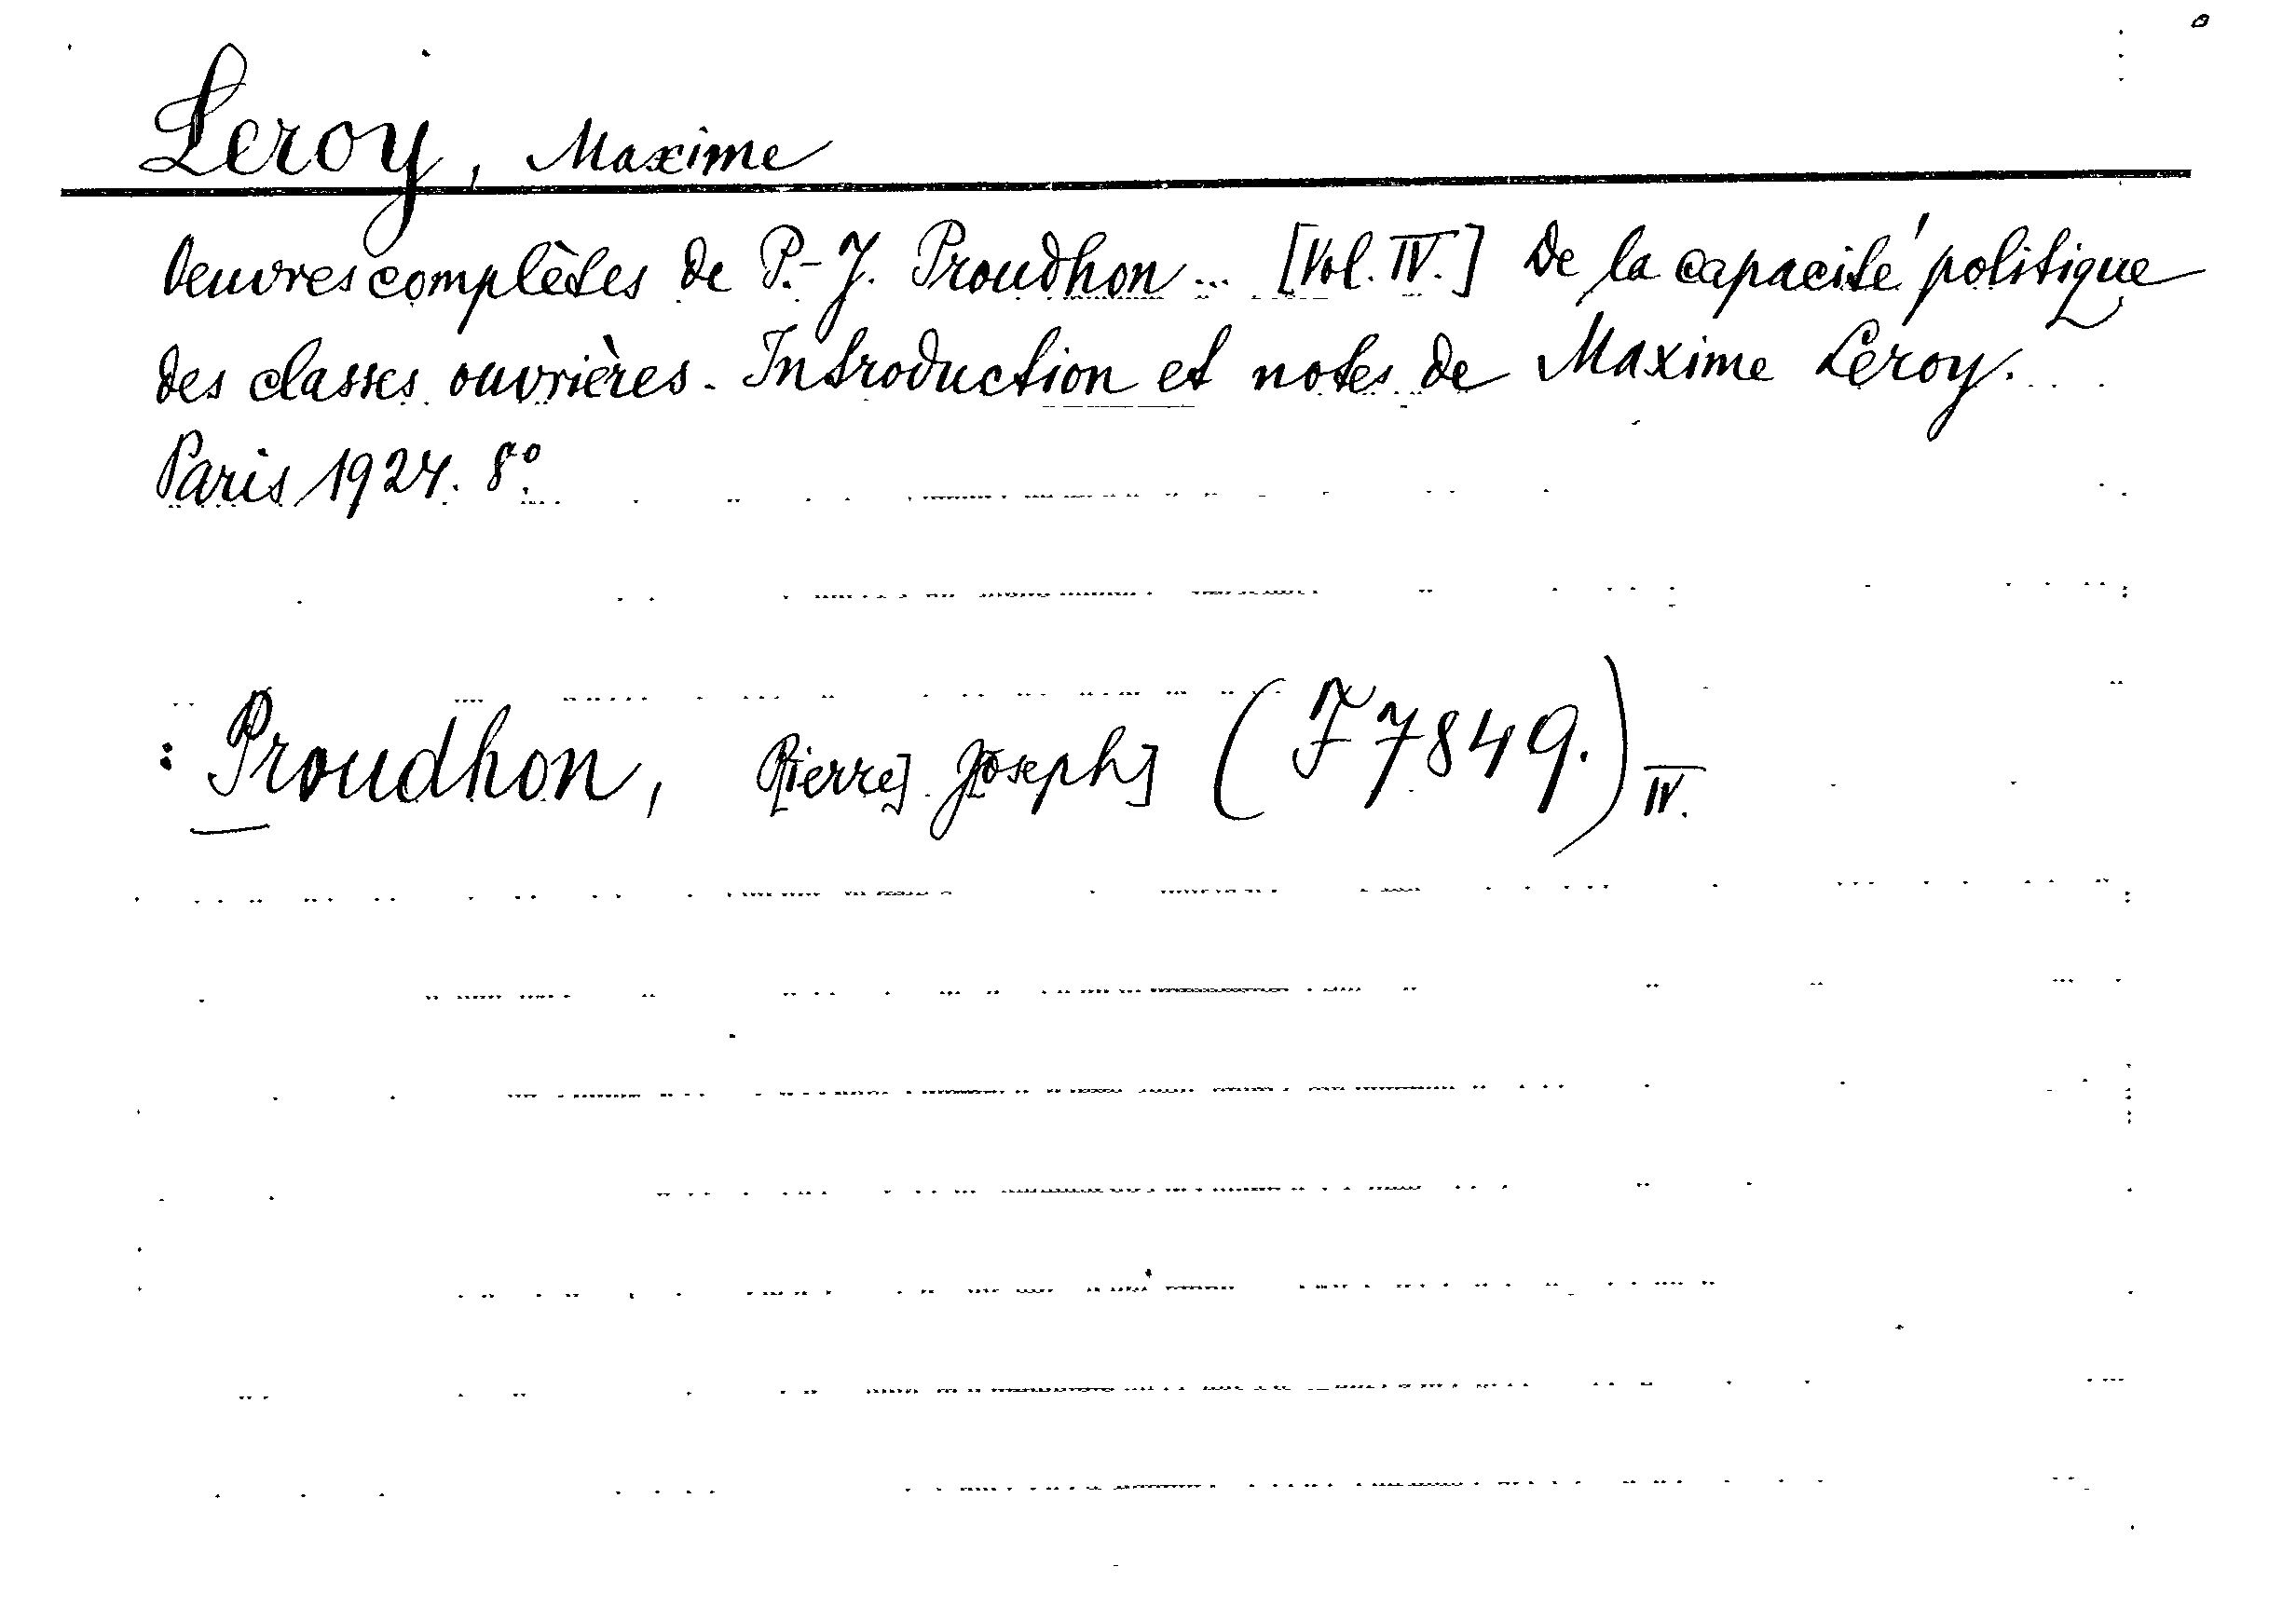 Leroy, Maxime
Oeuvres complètes de P.-J. Proudhon ... [Vol. IV.] De la capacité politique
des classes ouvrières. Introduction et notes de Maxime Leroy.
Paris 1924. 8°.
: Proudhon, P[ierre] J[oseph] (F 7849.) IV.